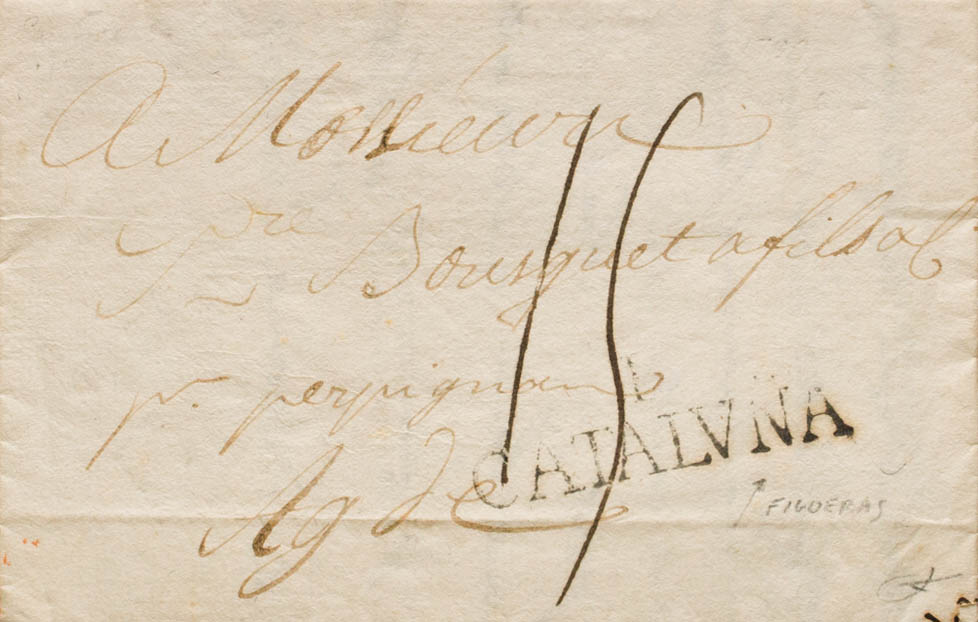 A Monsieur
15
pre Bousquet a fils a
pr. perpignan
CATALVÑA
Agde
FIGUERAS